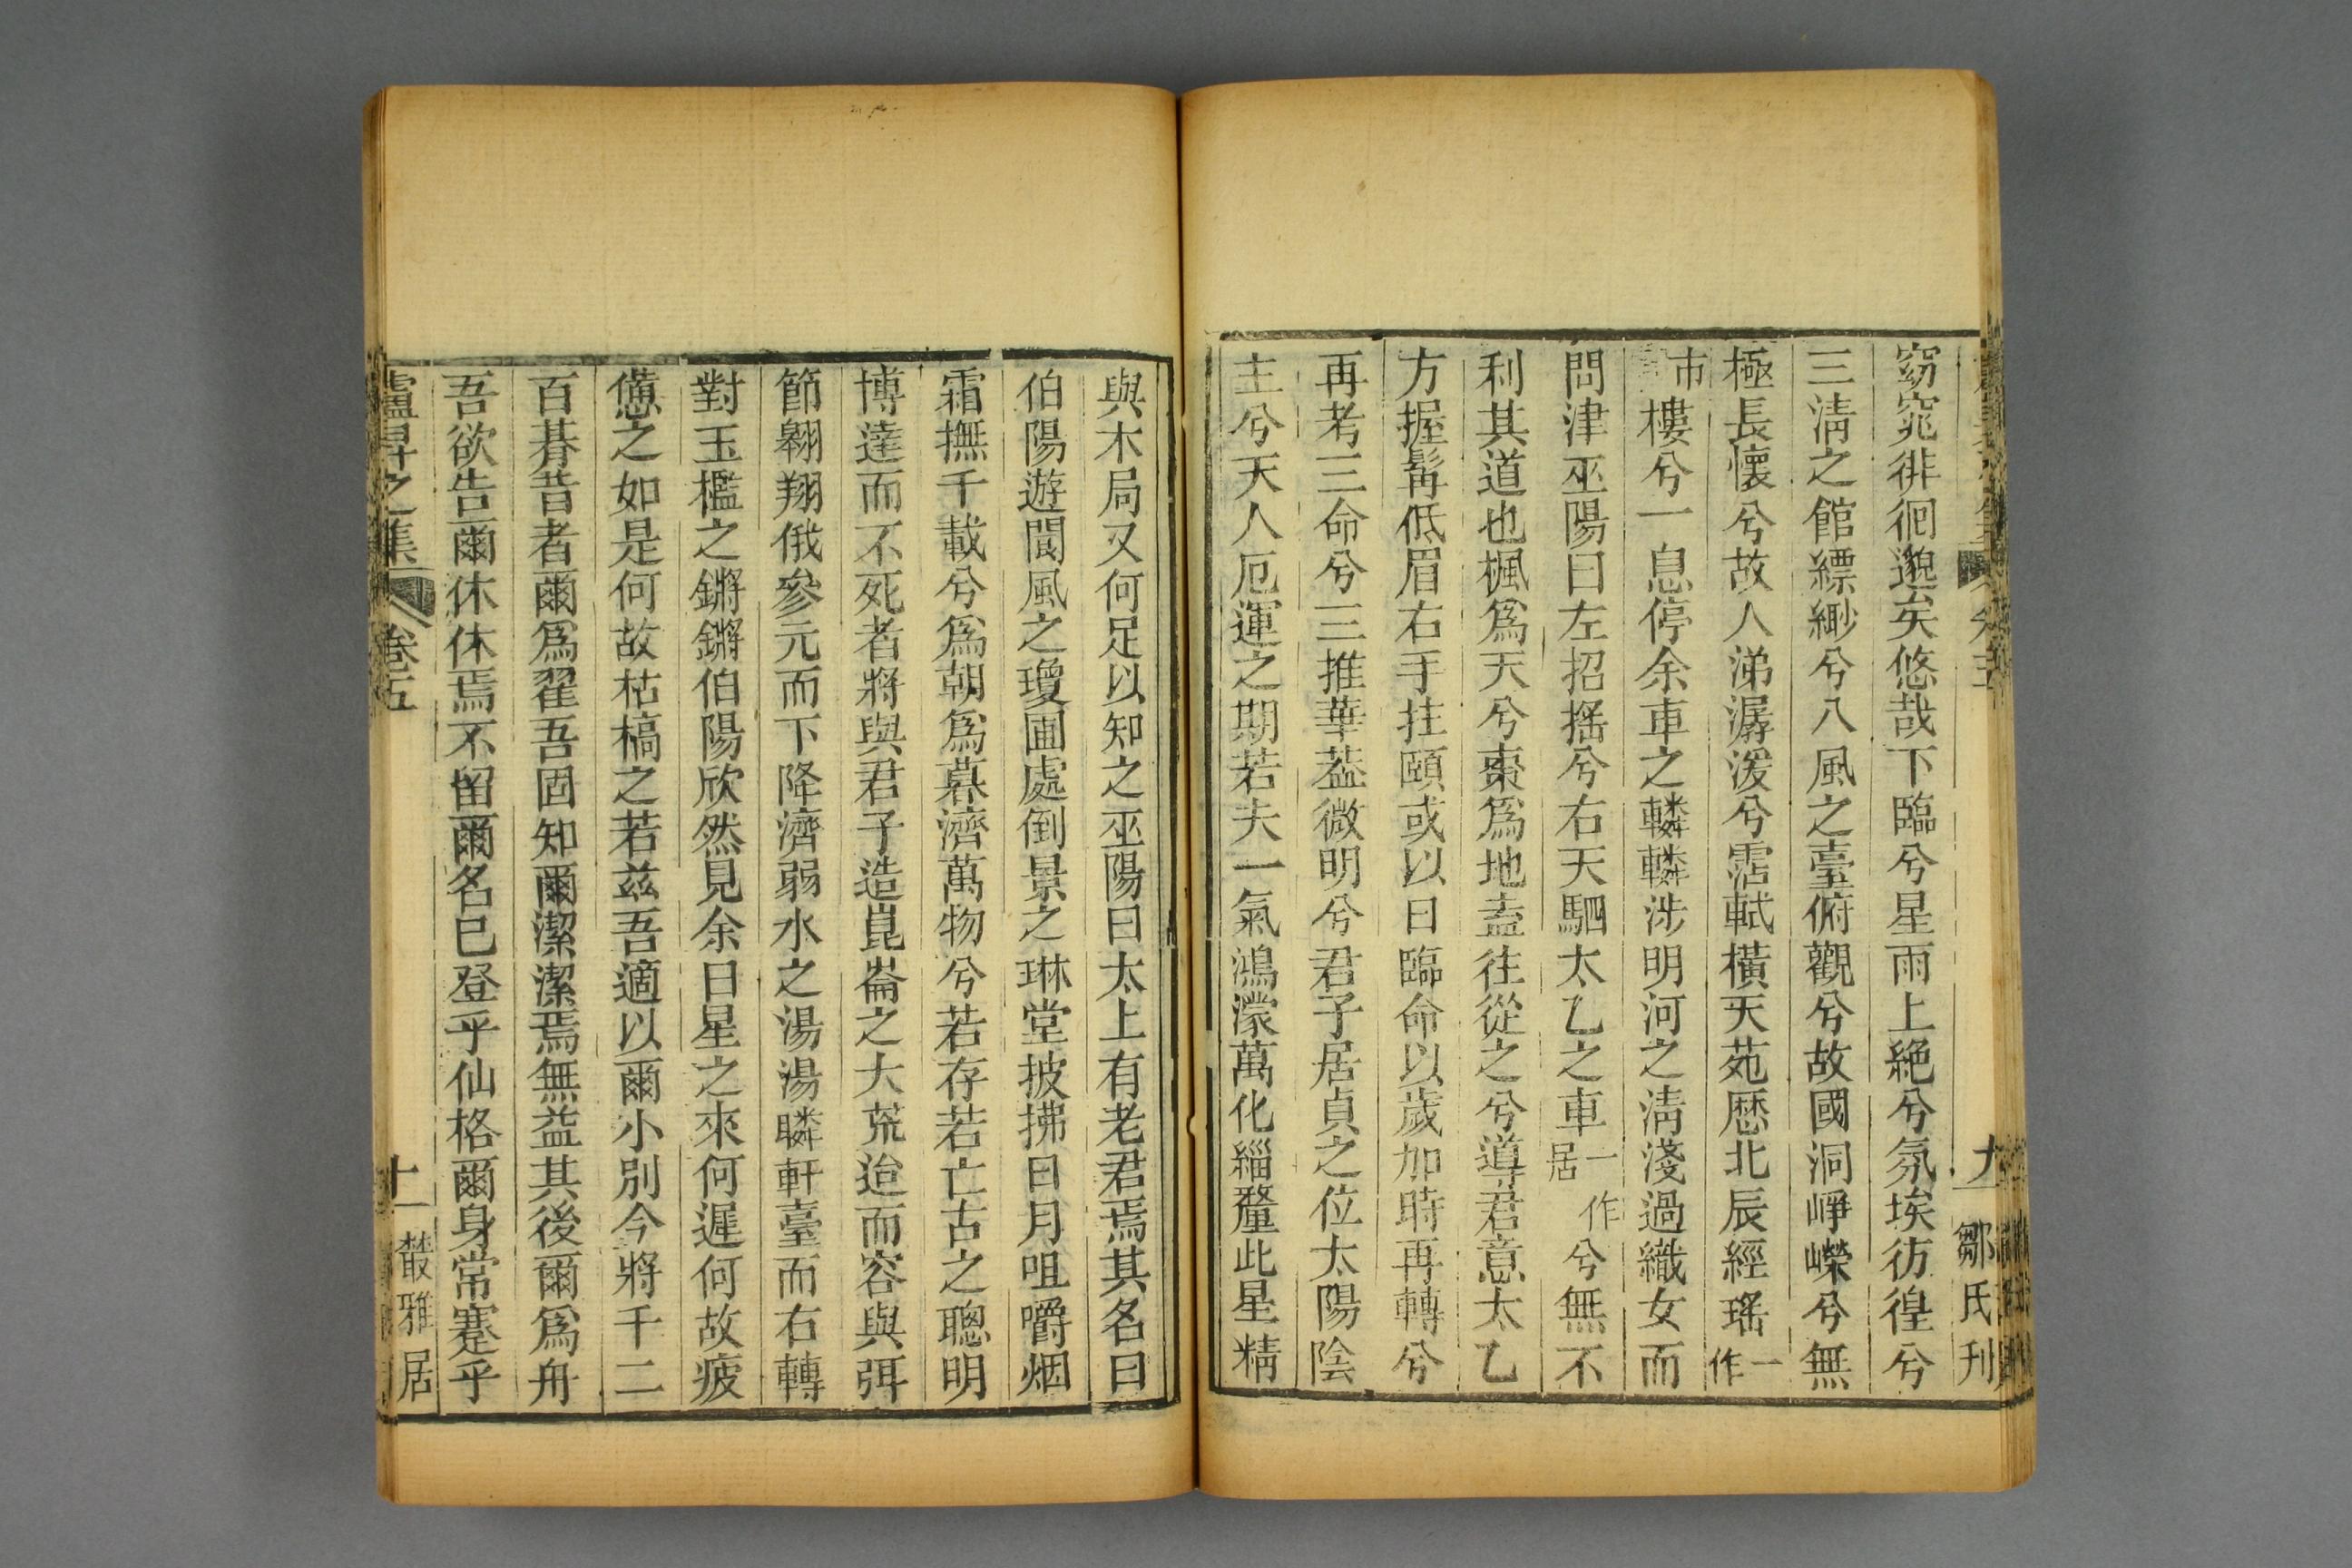 窈窕徘徊邈矣悠哉下臨兮星雨上絶兮氛埃彷徨兮
三淸之館縹緲兮八風之臺俯觀兮故國洞崢嶸兮無
極長懷兮故人涕潺湲兮霑軾橫天苑厯北辰經瑤一作
市樓兮一息停余車之轔轔涉明河之淸淺過織女而
問津巫陽曰左招搖兮右天駟太乙之車一作居兮無不
利其道也楓爲天兮棗爲地盍往從之兮導君意太乙
方握髯低眉右手拄頤或以日臨命以歲加時再轉兮
再考三命兮三推華葢微明兮君子居貞之位太陽陰
主兮天人厄運之期若夫一氣鴻濛萬化緇釐此星精
九
鄒氏刊
與木局又何足以知之巫陽曰太上有老君焉其名曰
伯陽遊閬風之瓊圃處倒景之琳堂披拂日月咀嚼烟
霜撫千載兮爲朝爲暮濟萬物兮若存若亡古之聰明
博達而不死者將與君子造崑崙之大荒迨而容與弭
節翱翔俄參元而下降濟弱水之湯湯瞵軒臺而右轉
對玉檻之鏘鏘伯陽欣然見余曰星之來何遲何故疲
憊之如是何故枯槁之若兹吾適以爾小別今將千二
百朞昔者爾爲翟吾固知爾潔潔焉無益其後爾爲舟
吾欲告爾休休焉不留爾名已登乎仙格爾身常蹇乎
盧昇之集
卷五
十
叢雅居